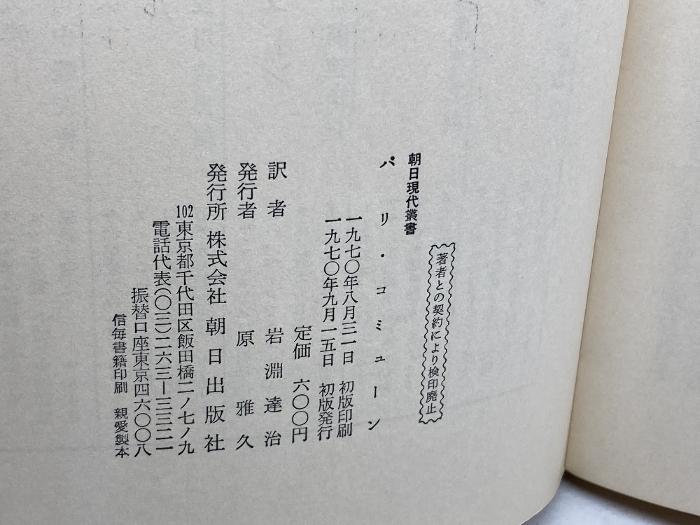 著者との契約により検印廃止
朝日現代叢書
パリ・コミューン
一九七〇年八月三一日 初版印刷
一九七〇年九月一五日 初版発行
定価 六〇〇円
訳者 岩淵達治
発行者 原雅久
発行所 株式会社 朝日出版社
102東京都千代田区飯田橋二ノ七ノ九
電話代表(〇三)二六三―三三二一
振替口座東京四六〇〇八
信毎書籍印刷 親愛製本